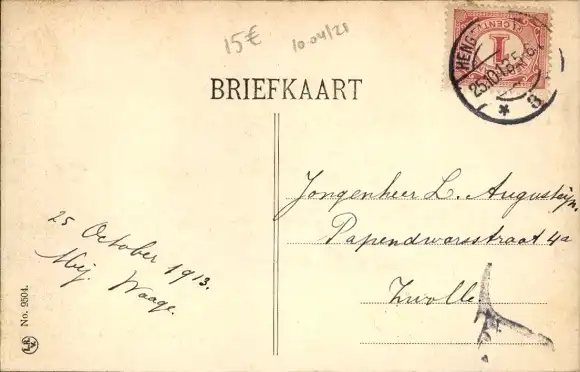 15€
10-04/21
BRIEFKAART
HENG
25.10.13
8
1
CENT
Jongenheer L. Augusteijn.
Papendwarsstraat 4a
Zwolle
25 October 1913.
Mej. Waage.
No. 9504.